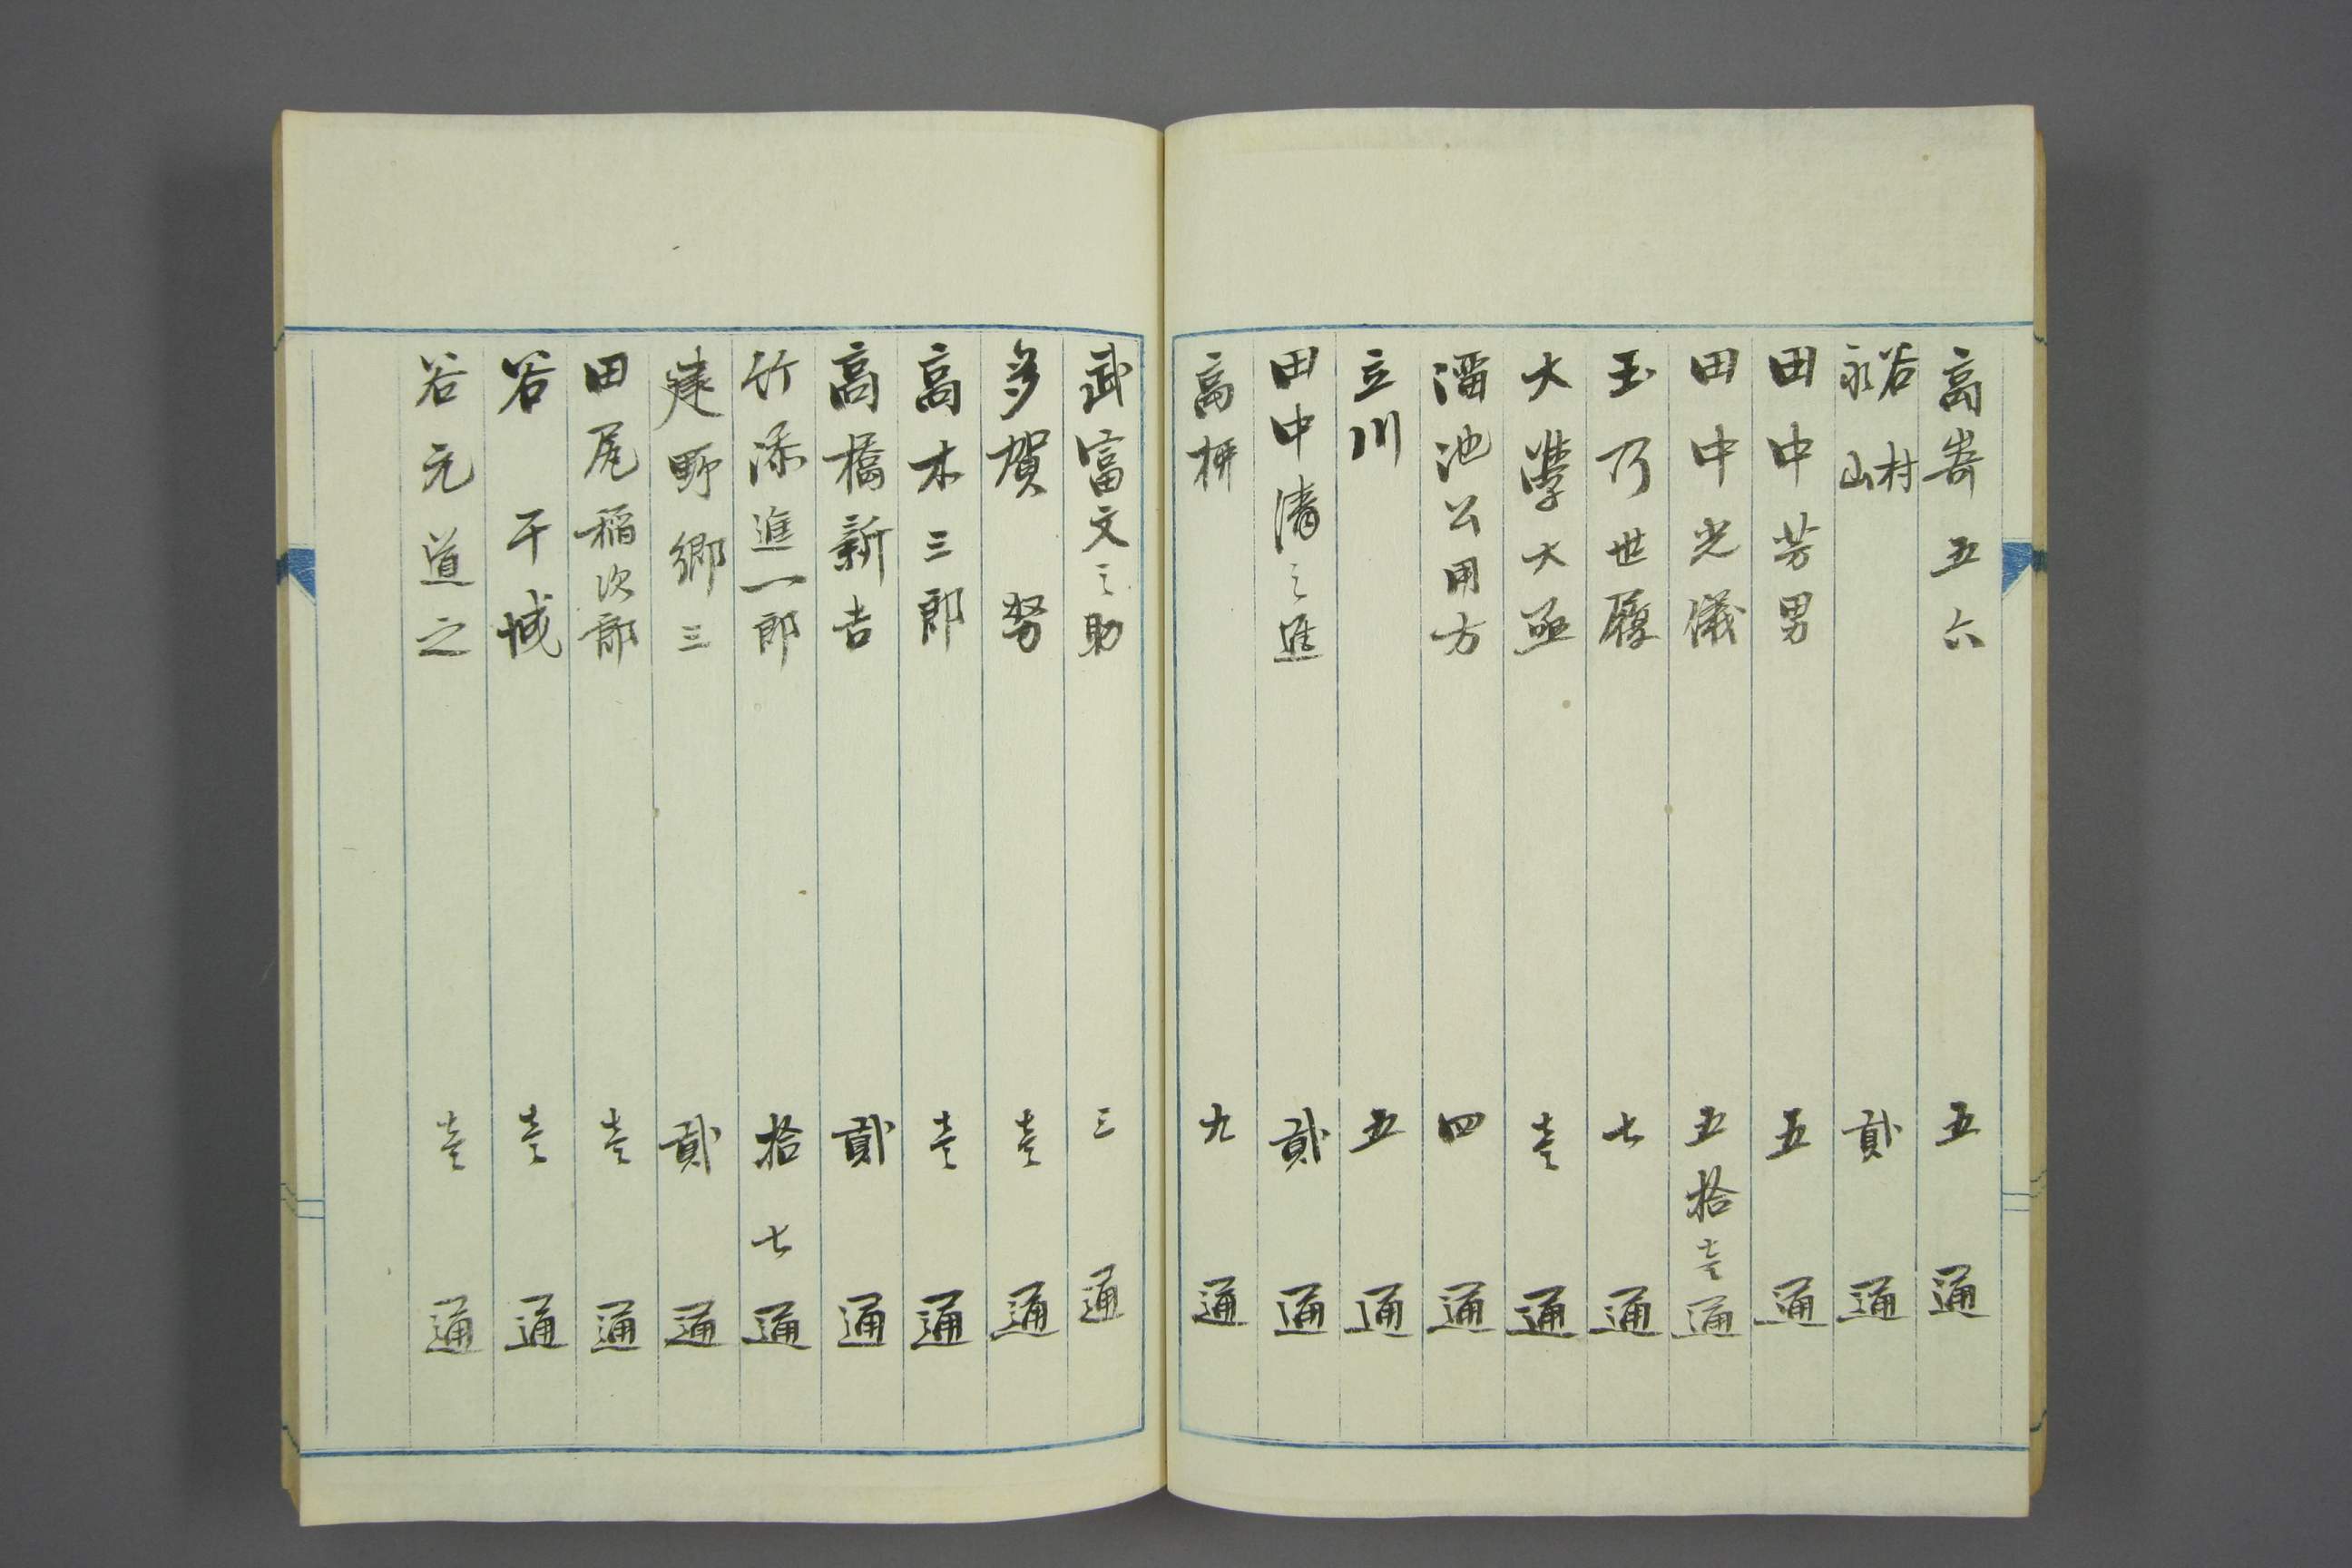 高嵜五六 五通
谷村 永山 貳通
田中芳男 五通
田中光儀 五拾壱通
玉乃世履 七通
大學大丞 壱通
溜池公用方 四通
立川 五通
田中清之進 貳通
高柳 九通
武富文之助 三通
多賀努 壱通
高木三郎 壱通
高橋新吉 貳通
竹添進一郎 拾七通
建野郷三 貳通
田尾稲次郎 壱通
谷干城 壱通
谷元道之 壱通